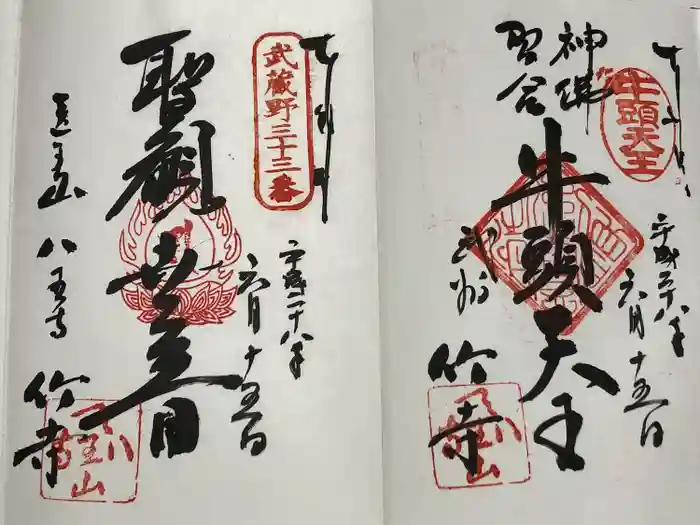 奉拝
牛頭天王
神仏
習合
牛頭天王
武州
竹寺
平成二十八年
六月十五日
奉拝
武蔵野三十三番
聖観世音
医王山 八王寺
竹寺
平成二十八年
六月十五日